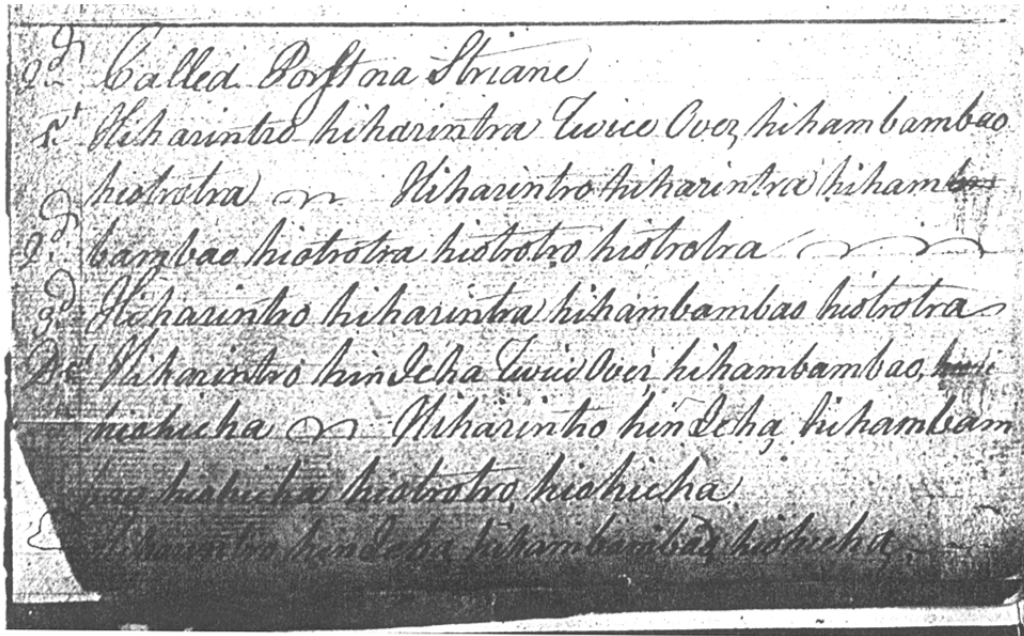 2d Called Porst na Striane
1st Hiharintro hiharintra Twice Over, hihambambao
hiotrotra Hiharintro hiharintra hiham
2d bambao hiotrotra hiotrotro hiotrotra
3d Hiharintro hiharintra hihambambao hiotrotra
Hiharintro hindcha Twice Over, hihambambao,
hiohicha Hiharintro hindcha, hihambam
bao hiohicha hiotrotro hiohicha
Hiharintro hindcha hihambambao, hiohicha